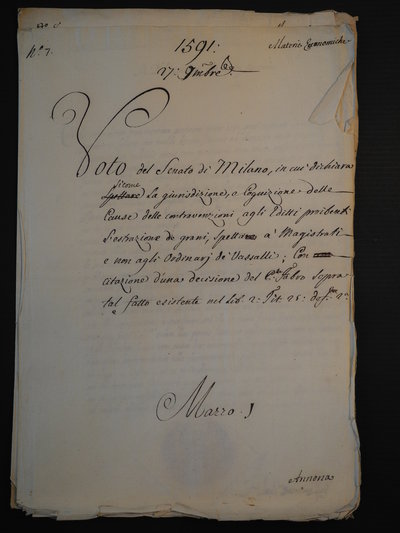 N.º 7.
1591:
Materie Economiche
27: 9mbre
Voto del Senato di Milano, in cui dichiara
siccome
spettare la giurisdizione, o Cognizione delle
Cause delle contravenzioni agli Editti proibenti
l'estrazione de grani, spetta a' Magistrati
e non agli Ordinarj de' Vassalli; Con
citazione d'una decisione del Fabro sopra
tal fatto esistente nel Lib. 2: Tit. 25:
Mazzo 1
Annona